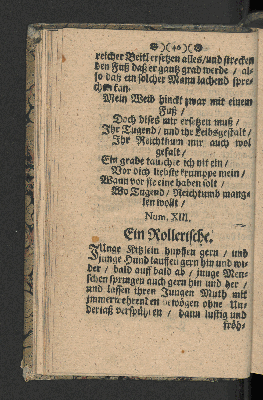 )( 46 )(
reicher Beitl ersetzen alles/und strecken
den Fuß daß er gantz grad werde / al-
so daß ein solcher Mann lachend spre-
chen kan.
Mein Weib hinckt zwar mit einem
Fuß /
Doch dises mir ersetzen muß /
Ihr Tugend / und ihr Leibsgestalt /
Ihr Reichthum mir auch wol
gefalt /
Ein grade tauschte ich nit ein /
Vor dich liebste krumppe mein /
Wann vor sie eine haben solt /
Wo Tugend / Reichtumb mang-
len wollt /
Num. XIII.
Ein Rollerische.
Junge Kitzlein hupffen gern / und
junge Hund lauffen gern hin und wi-
der / bald auff bald ab / junge Men-
schen springen auch gern hin und her /
und lassen ihren Jungen Muth mit
immerwehrenden bewögen ohne Un-
derlaß verspühren / dann lustig und
fröh-